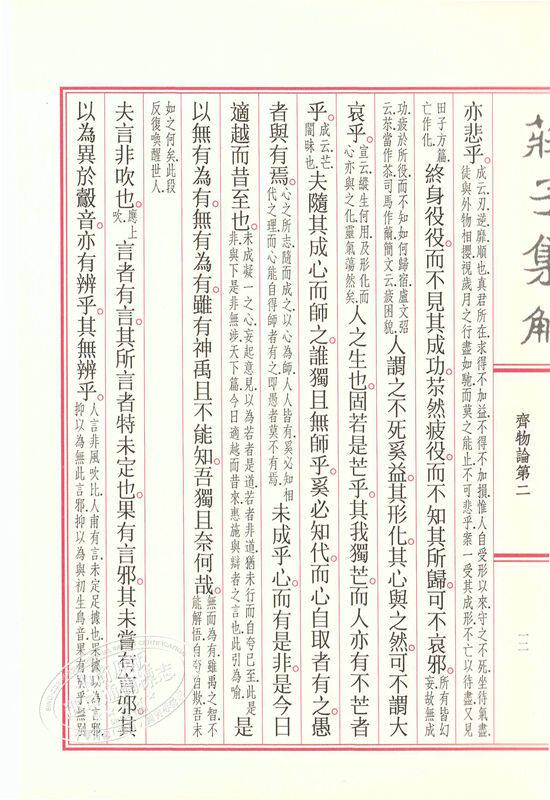 莊子集解
齊物論第二
亦悲乎。成云.刃.逆.靡.順也.真君所在.求得不加益.不得不加損.惟人自受形以來.守之不死.坐待氣盡.徒與外物相攖.視歲月之行盡如馳.而莫之能止.不可悲乎.案一受其成形.不亡以待盡.又見
田子方篇.亡作化.終身役役而不見其成功。苶然疲役而不知其所歸。可不哀邪。所有皆幻妄.故無成
功.疲於所役.而不知如何歸宿.盧文弨云.苶當作苶.司馬作薾.簡文云.疲困貌.人謂之不死奚益。其形化。其心與之然。可不謂大
哀乎。宣云.縱生何用.及形化而心亦與之化.靈氣蕩然矣.人之生也。固若是芒乎。其我獨芒。而人亦有不芒者
乎。成云.芒.闇昧也.夫隨其成心而師之。誰獨且無師乎。奚必知代而心自取者有之。愚
者與有焉。心之所志.隨而成之.以心為師.人人皆有.奚必知相代之理.而心能自得師者有之.即愚者莫不有焉.未成乎心而有是非。是今日
適越而昔至也。未成凝一之心.妄起意見.以為若者是道.若者非道.猶未行而自夸已至.此是非.與下是非無涉.天下篇.今日適越而昔來.惠施與辯者之言也.此引為喻.是
以無有為有。無有為有。雖有神禹且不能知。吾獨且奈何哉。無而為有.雖禹之智.不能解悟.自夸自欺.吾末
如之何矣.此段反復喚醒世人.
夫言非吹也。應上吹.言者有言。其所言者特未定也。果有言邪。其未嘗有言邪。其
以為異於鷇音。亦有辨乎。其無辨乎。人言非風吹比.人甫有言.未定足據也.果據以為言邪.抑以為無此言邪.抑以為與初生鳥音果有異乎.無別